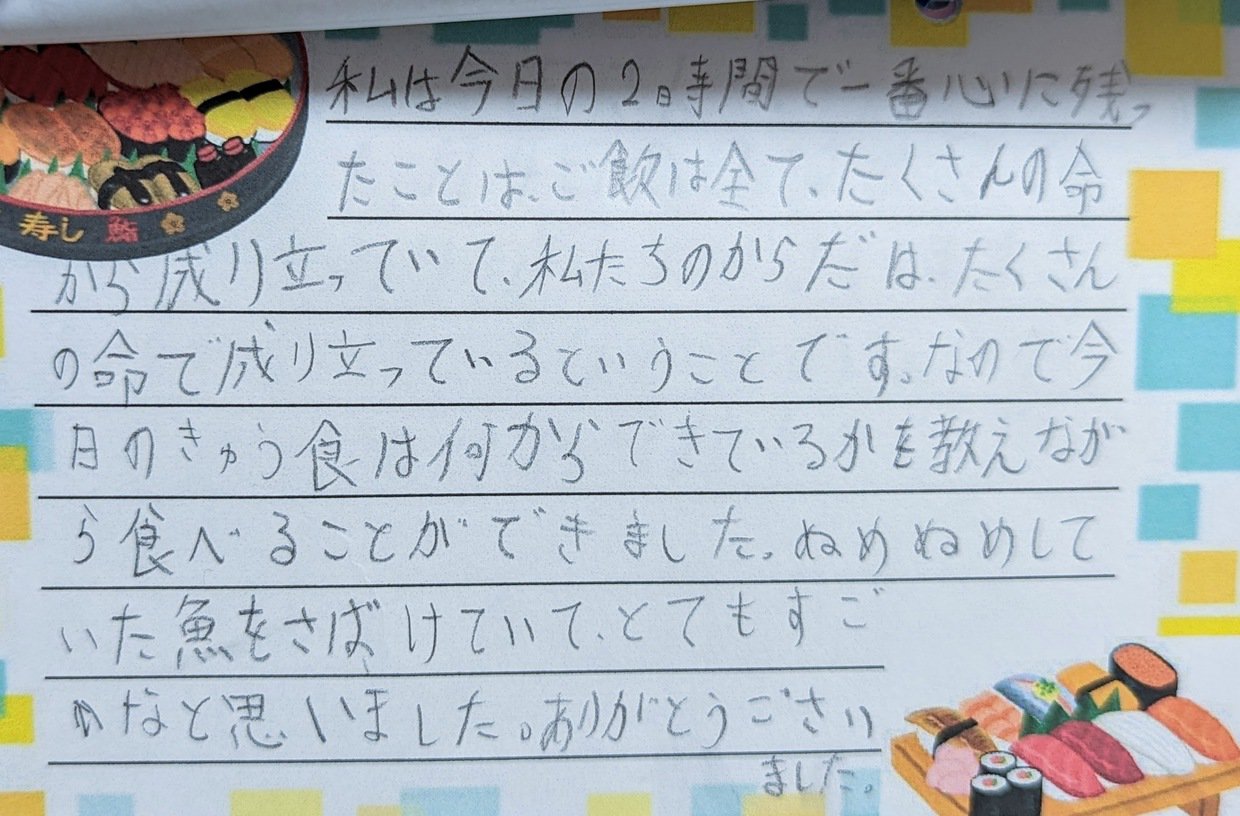 寿し 鮨
私は今日の2時間で一番心に残っ
たことは、ご飲は全て、たくさんの命
から成り立っていて、私たちのからだは、たくさん
の命で成り立っているということです。なので今
日のきゅう食は何からできているかを教えなが
ら食べることができました。ぬめぬめして
いた魚をさばけていて、とてもすご
いなと思いました。ありがとうござい
ました。